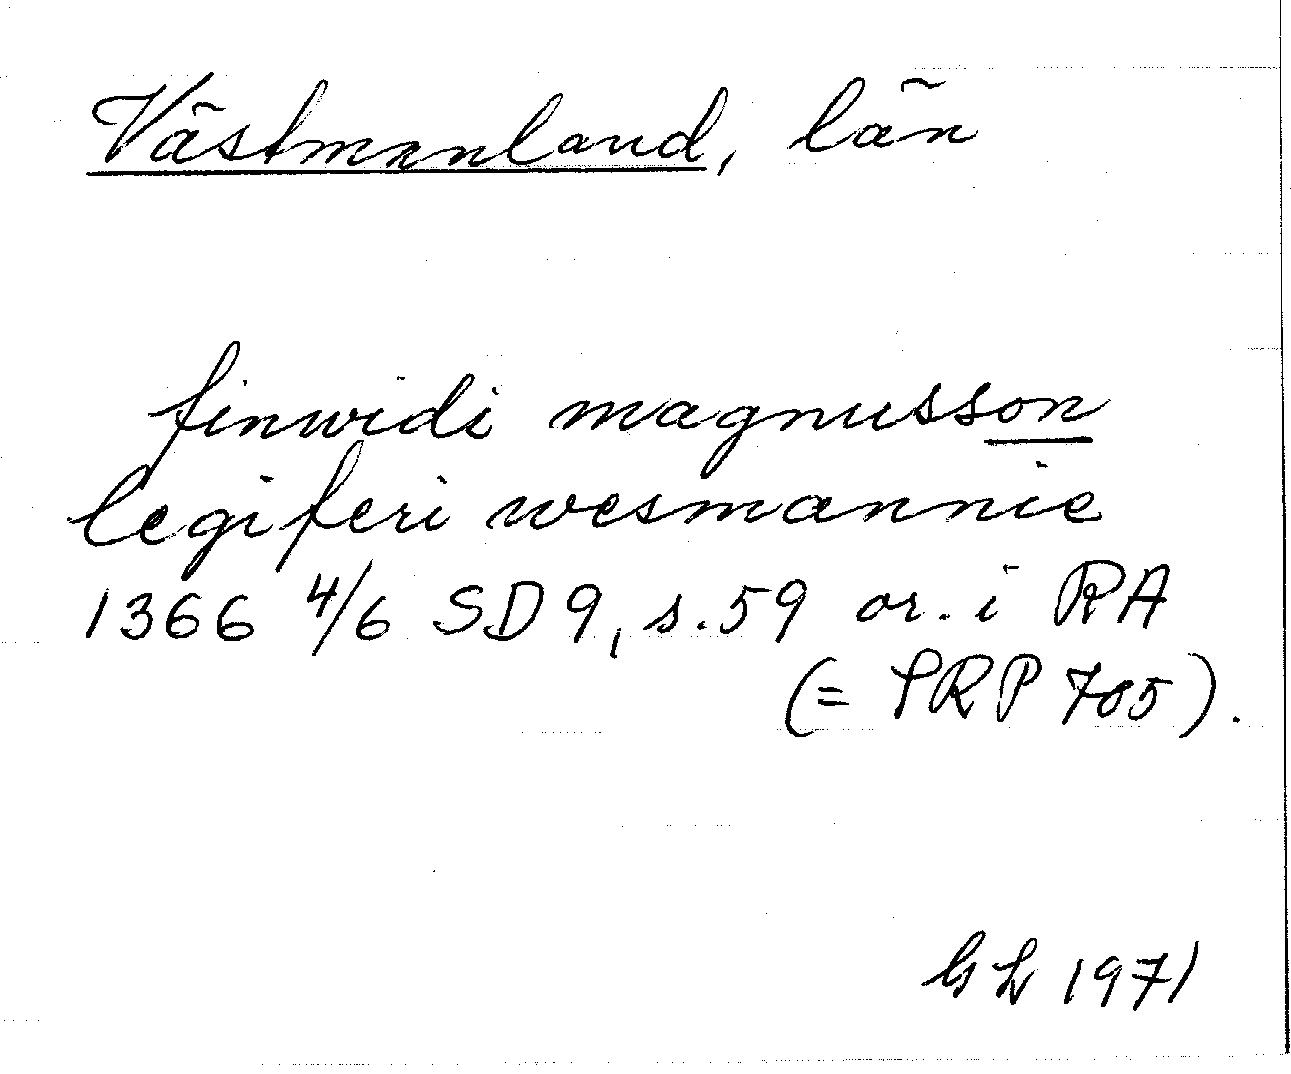 Västmanland, län
finwidi magnusson
legiferi wesmannie
1366 4/6 SD 9, s. 59 or. i RA
(= SRP 705).
GL 1971